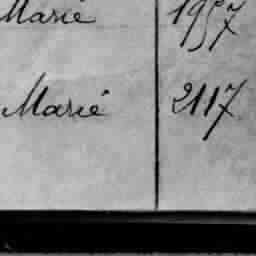 Marié 1957
Marié 2117